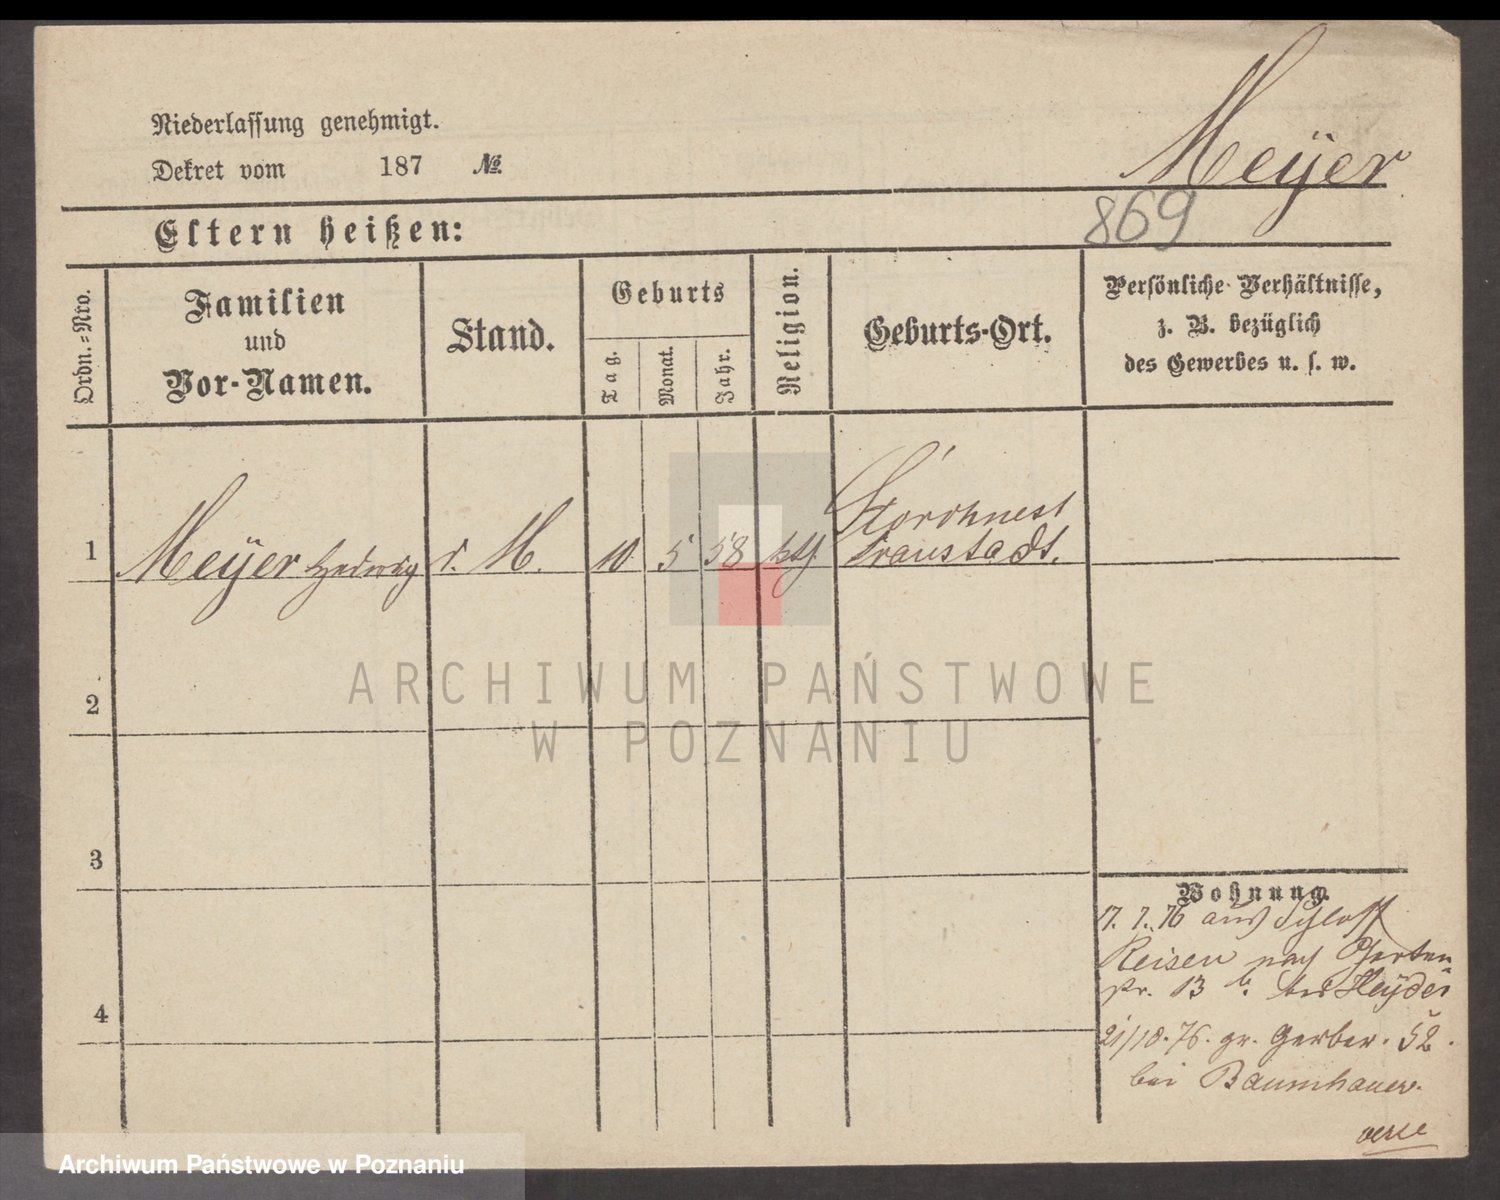 Niederlassung genehmigt.
Dekret vom 187 №
Meÿer
869
Eltern heißen:
Ordn.=Nro.
Familien
und
Vor-Namen.
Stand.
Geburts
Tag.
Monat.
Jahr.
Religion.
Geburts-Ort.
Persönliche Verhältnisse,
z. B. bezüglich
des Gewerbes u. s. w.
1 Meÿer Hedwig d. M. 10 5 58 kth Storchnest
Fraustadt.
2
3
4
Wohnung.
17. 7. 76 aus Schloß
Reisen nach Garten
str. 13 b. bei Heÿder
21/10. 76. gr. Gerber. 52.
bei Baumhauer.
verte
ARCHIWUM PAŃSTWOWE
W POZNANIU
Archiwum Państwowe w Poznaniu